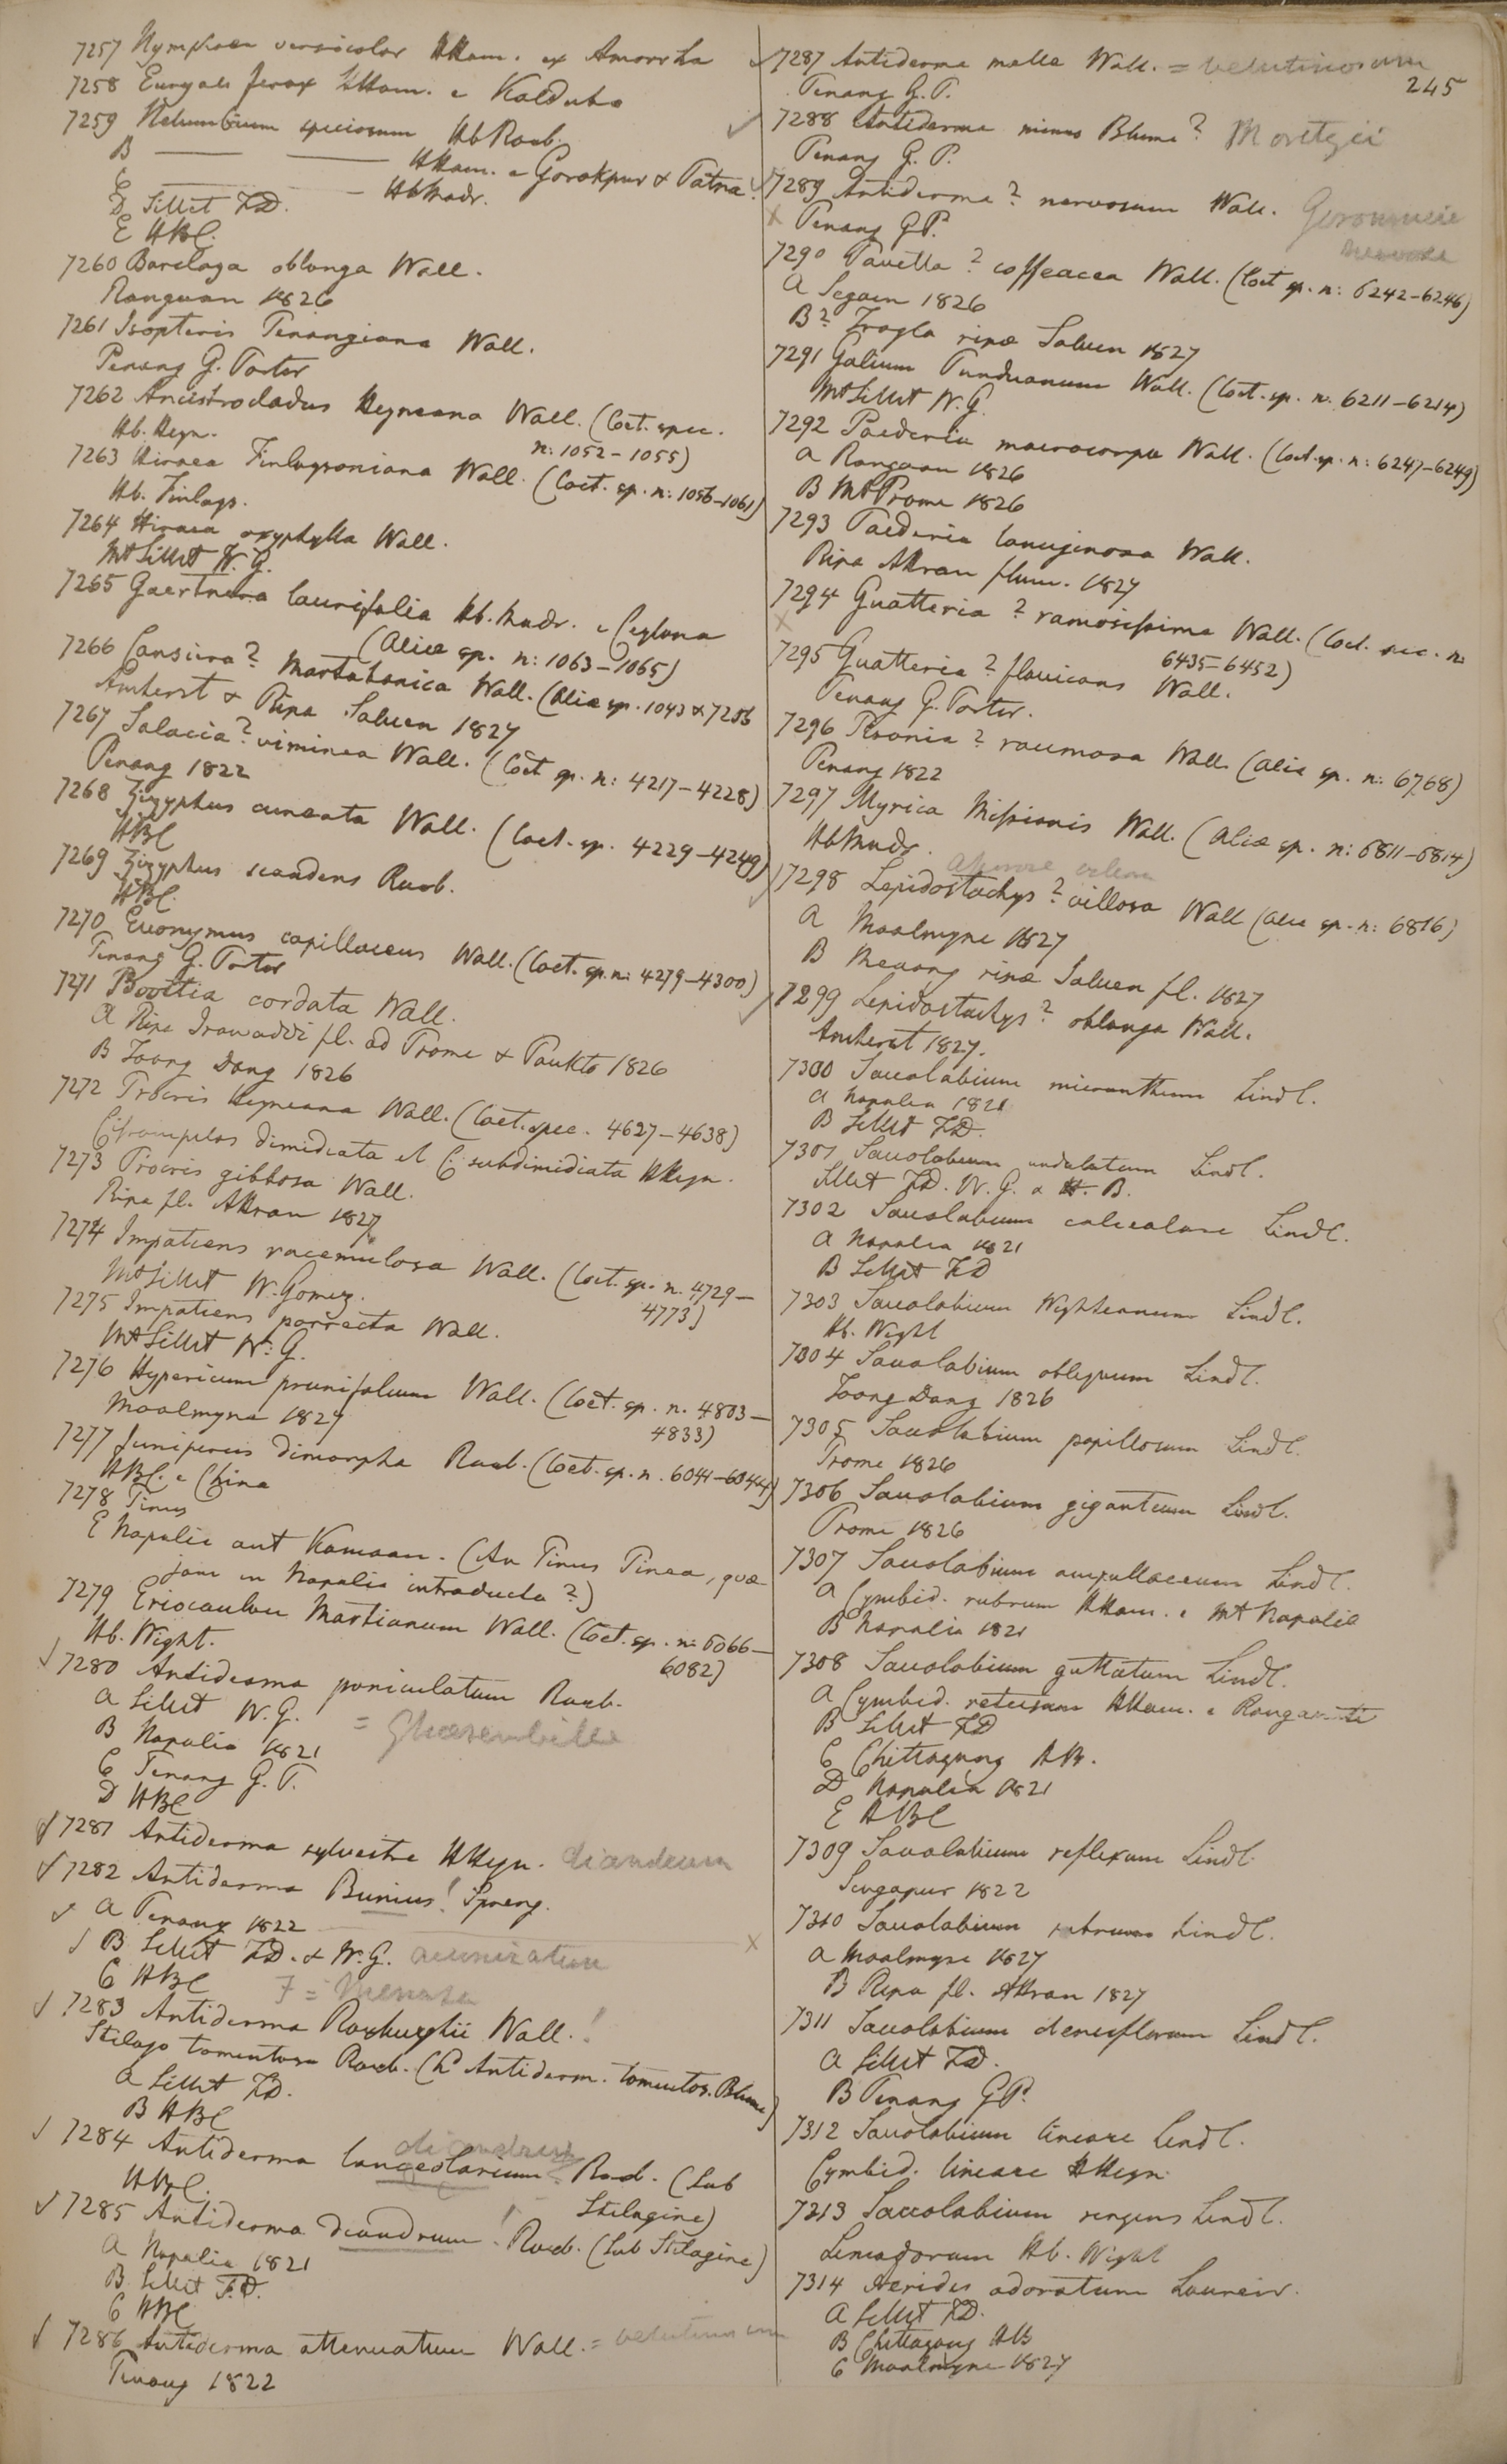 7257 Nymphaea versicolor HHam. ex Amorrha
7258 Euryale ferox HHam. e Kaldubo
7259 Nelumbium speciosum HbRoxb.
B — — HHam. e Gorakpur & Patna.
C — — HbMadr.
D Sillet FD.
E HBC.
7260 Barclaya oblonga Wall.
Ranguan 1826
7261 Isopteris Penangiana Wall.
Penang G. Porter
7262 Ancistrocladus Heyneana Wall. (Coet. spec.
n: 1052-1055)
Hb. Heyn.
7263 Hiraea Finlaysoniana Wall. (Coet. sp. n: 1056-1061)
Hb. Finlays.
7264 Hiraea oxyphylla Wall.
Mt Sillet W. G.
7265 Gaertnera laurifolia Hb. Madr. e Ceylona
(Aliae sp. n: 1063-1065)
7266 Cansiera? Martabanica Wall. (Alia sp. 1043 & 7256
Amherst & Ripa Saluen 1827
7267 Salacia? viminea Wall. (Coet sp. n: 4217-4228)
Penang 1822
7268 Zizyphus cuneata Wall. (Coet. sp. 4229-4249)
HBC
7269 Zizyphus scandens Roxb.
HBC.
7270 Euonymus capillaceus Wall. (Coet. sp. n: 4279-4300)
Penang G. Porter
7271 Boottia cordata Wall.
A Ripa Irawaddi fl. ad Prome & Paukto 1826
B Toong Dong 1826
7272 Procris Heyneana Wall. (Coet. spec. 4627-4638)
dimidiata et C: subdimidiata HHeyn.
7273 Procris gibbosa Wall.
Ripa fl. Attran 1827
7274 Impatiens racemulosa Wall. (Coet. sp. n. 4729-
4773)
Mt Sillet W. Gomez.
7275 Impatiens porrecta Wall.
Mt Sillet W. G.
7276 Hypericum prunifolium Wall. (Coet. sp. n. 4803-
4833)
Moalmyne 1827
7277 Juniperus dimorpha Roxb. (Coet. sp. n. 6041-6044)
HBC. e China
7278 Pinus
E Napalia aut Kamaon. (An Pinus Pinea, quae
jam in Napalia introducta?)
7279 Eriocaulon Martianum Wall. (Coet. sp. n: 6066-
6082)
Hb. Wight.
7280 Antidesma paniculatum Roxb.
A Sillet W. G. = Ghaesembilla
B Napalia 1821
C Penang G. P.
D HBC
7281 Antidesma sylvestre HHeyn. diandrum
7282 Antidesma Bunius! Spreng.
A Penang 1822
B Sillet FD. & W. G. acuminatum
C HBC 7 = Menasu
7283 Antidesma Roxburghii Wall. !
Stilago tomentosa Roxb. (h Antidesm. tomentos. Blume)
A Sillet FD.
B HBC
7284 Antidesma lanceolarium Roxb. (sub
diandrum
Stilagine)
HBC.
7285 Antidesma diandrum! Roxb. (sub Stilagine)
A Napalia 1821
B. Sillet F.D.
C HBC
7286 Antidesma attenuatum Wall. = velutinosum
Penang 1822
7287 Antidesma molle Wall. = velutinosum
245
Penang G. P.
7288 Antidesma minus Blume? Moritzii
Penang G. P.
7289 Antidesma? nervosum Wall.
nervosa
Penang GP.
7290 Pavetta? coffeacea Wall. (Coet sp. n: 6242-6246)
A Segaen 1826
B? Trogla ripae Saluen 1827
7291 Galium Punduanum Wall. (Coet. sp. n. 6211-6214)
Mt Sillet W. G.
7292 Paederia macrocarpa Wall. (Coet. sp. n: 6247-6249)
A Ranguan 1826
B Mt Prome 1826
7293 Paederia lanuginosa Wall.
Ripa Attran flum. 1827
7294 Guatteria? ramosissima Wall. (Coet. spec. n:
6435-6452)
7295 Guatteria? flavicans Wall.
Penang G. Porter.
7296 racemosa Wall. (Alia sp. n: 6768)
Penang 1822
7297 Myrica Missionis Wall. (Aliae sp. n: 6811-6814)
HbMadr.
7298 Lepidostachys? villosa Wall (Alia sp. n: 6816)
A Moalmyne 1827
B Meaong ripae Saluen fl. 1827
7299 Lepidostachys? oblonga Wall.
Amherst 1827.
7300 Saccolabium micranthum Lindl.
A Napalia 1821
B Sillet FD.
7301 Saccolabium undulatum Lindl.
Sillet FD. W. G. & H. B.
7302 Saccolabium calceolare Lindl.
A Napalia 1821
B Sillet FD
7303 Saccolabium Wightianum Lindl.
Hb. Wight
7304 Saccolabium obliquum Lindl.
Toong Dong 1826
7305 Saccolabium papillosum Lindl.
Prome 1826
7306 Saccolabium giganteum Lindl.
Prome 1826
7307 Saccolabium ampullaceum Lindl.
A Cymbid. rubrum HHam. e Mt Napaliae
B Napalia 1821
7308 Saccolabium guttatum Lindl.
A Cymbid. retusum HHam. e Rangamati
B Sillet FD
C Chittagong HB.
D Napalia 1821
E HBC
7309 Saccolabium reflexum Lindl.
Singapur 1822
7310 Saccolabium rubrum Lindl.
A Moalmyne 1827
B Ripa fl. Attran 1827
7311 Saccolabium densiflorum Lindl.
A Sillet FD.
B Penang GP.
7312 Saccolabium lineare Lindl.
Cymbid. lineare HHeyn.
7313 Saccolabium ringens Lindl.
Limodorum Hb. Wight
7314 Aerides odoratum Loureir.
A Sillet FD.
B Chittagong HB
C Moalmyne 1827